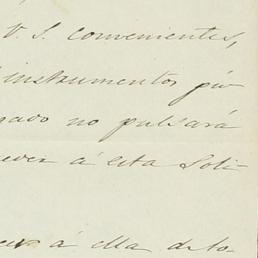 V. S. convenientes,
instrumentos pú-
gado no pulsará
á esta Soli-
á ella de lo-